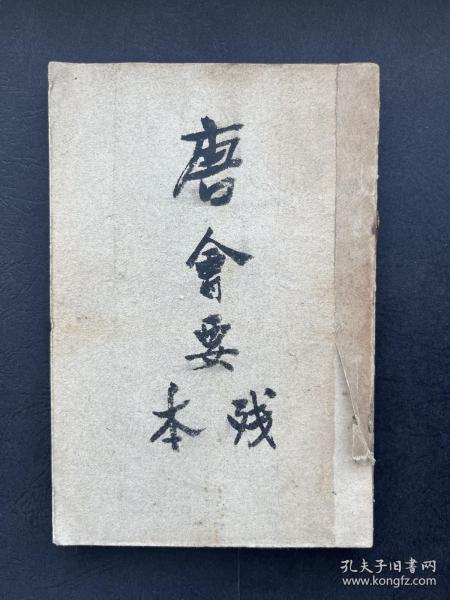 唐會要
残本
孔夫子旧书网
www.kongfz.com